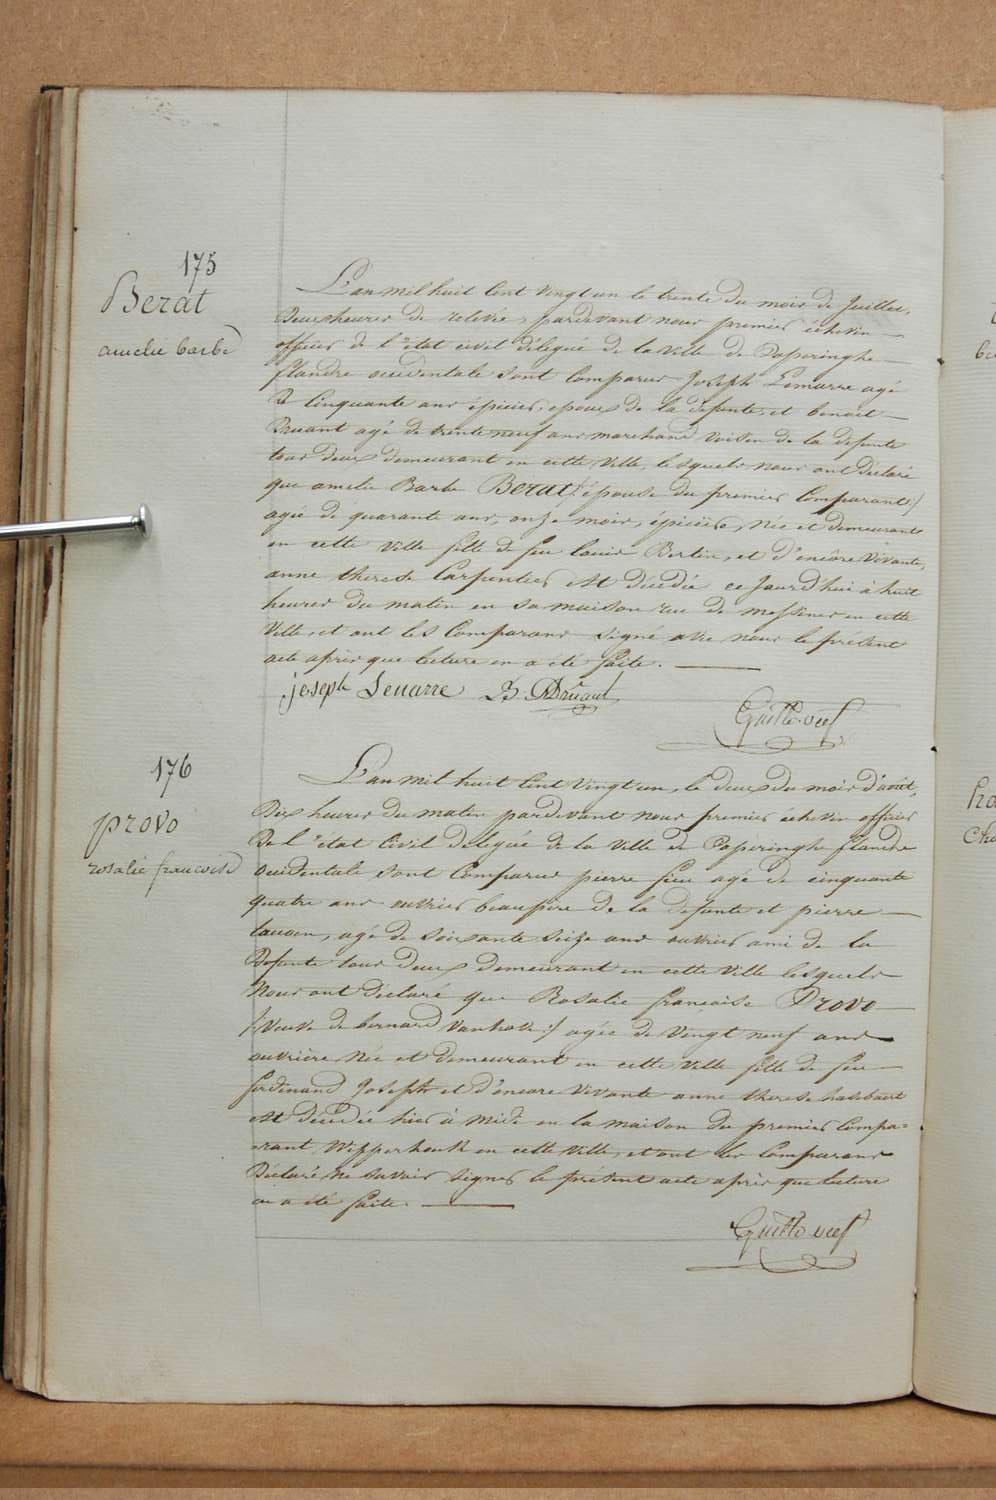 175
Berat
amelie barbe
L'an mil huit Cent vingt un le trente du mois de Juillet,
Deux heures de relevée, pardevant nous premier échevin
officier de l'état civil délégué de la ville de Poperinghe
flandre occidentale sont Comparus Joseph Lenarre agé
de Cinquante ans épicier, epoux de la défunte, et benoit
Druant agé de trente neuf ans marchand voisin de la defunte
tous deux demeurant en cette ville, lesquels nous ont déclaré
que amelie Barbe Berat /: épouse du premier Comparant :/
agée de quarante ans, onze mois, épicière, Née et demeurante
en cette ville fille de feu Louis Bertin, et d'encôre vivante,
anne therese Carpentier est décédée ce Jourd'hui à huit
heures du matin en sa maison rue de messines en cette
Ville, et ont les Comparans signé avec nous le présent
acte après que lecture en a été faite.
joseph Lenarre B. Druant
176
provo
rosalie francoise
L'an mil huit Cent vingt un, le deux du mois d'août,
Dix heures du matin pardevant nous premier échevin officier
De l'état Civil delegué de la ville de Poperinghe flandre
occidentale sont Comparus pierre feu agé de cinquante
quatre ans ouvrier beaupère de la defunte et pierre
agé de soixante seize ans ouvrier ami de la
Défunte tous deux demeurant en cette ville lesquels
Nous ont déclaré que Rosalie françoise Provo
/: Veuve de bernard vanhove :/ agée de vingt neuf ans
ouvrière Née et demeurant en cette ville fille de feu
ferdinand Joseph et d'encore vivante anne therese
est décédée hier à midi en la maison du premier Compa=
=rant, Wipperhouk en cette ville, et ont les Comparans
Déclaré, Ne savoir signer le présent acte après que lecture
en a été faite.